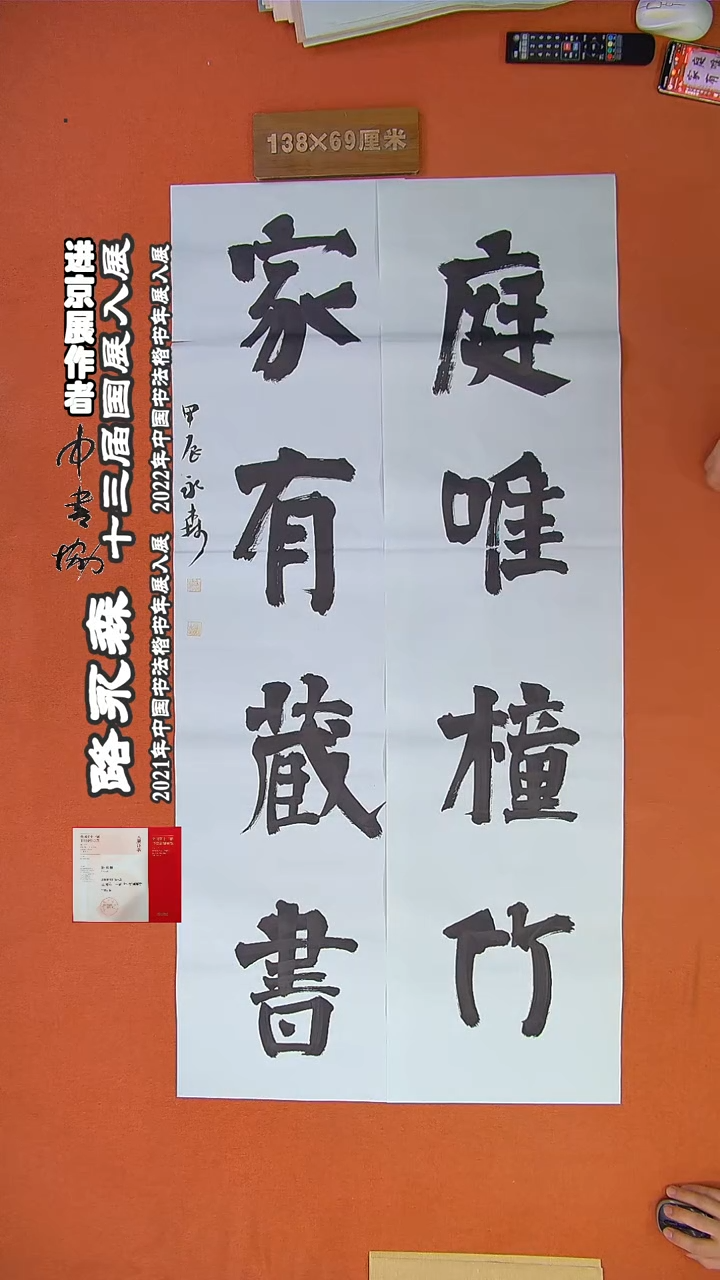 138×69厘米
庭唯橦竹
家有藏書
甲辰永森
中书协
进京展作者
路永森 十三届国展入展
2021年中国书法楷书年展入展 2022年中国书法楷书年展入展